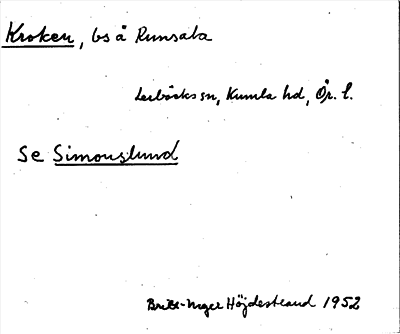 Kroken, bs å Runsala
Lerbäcks sn, Kumla hd, Ör. l.
Se Simonslund
Britt-Inger Höjdestrand 1952